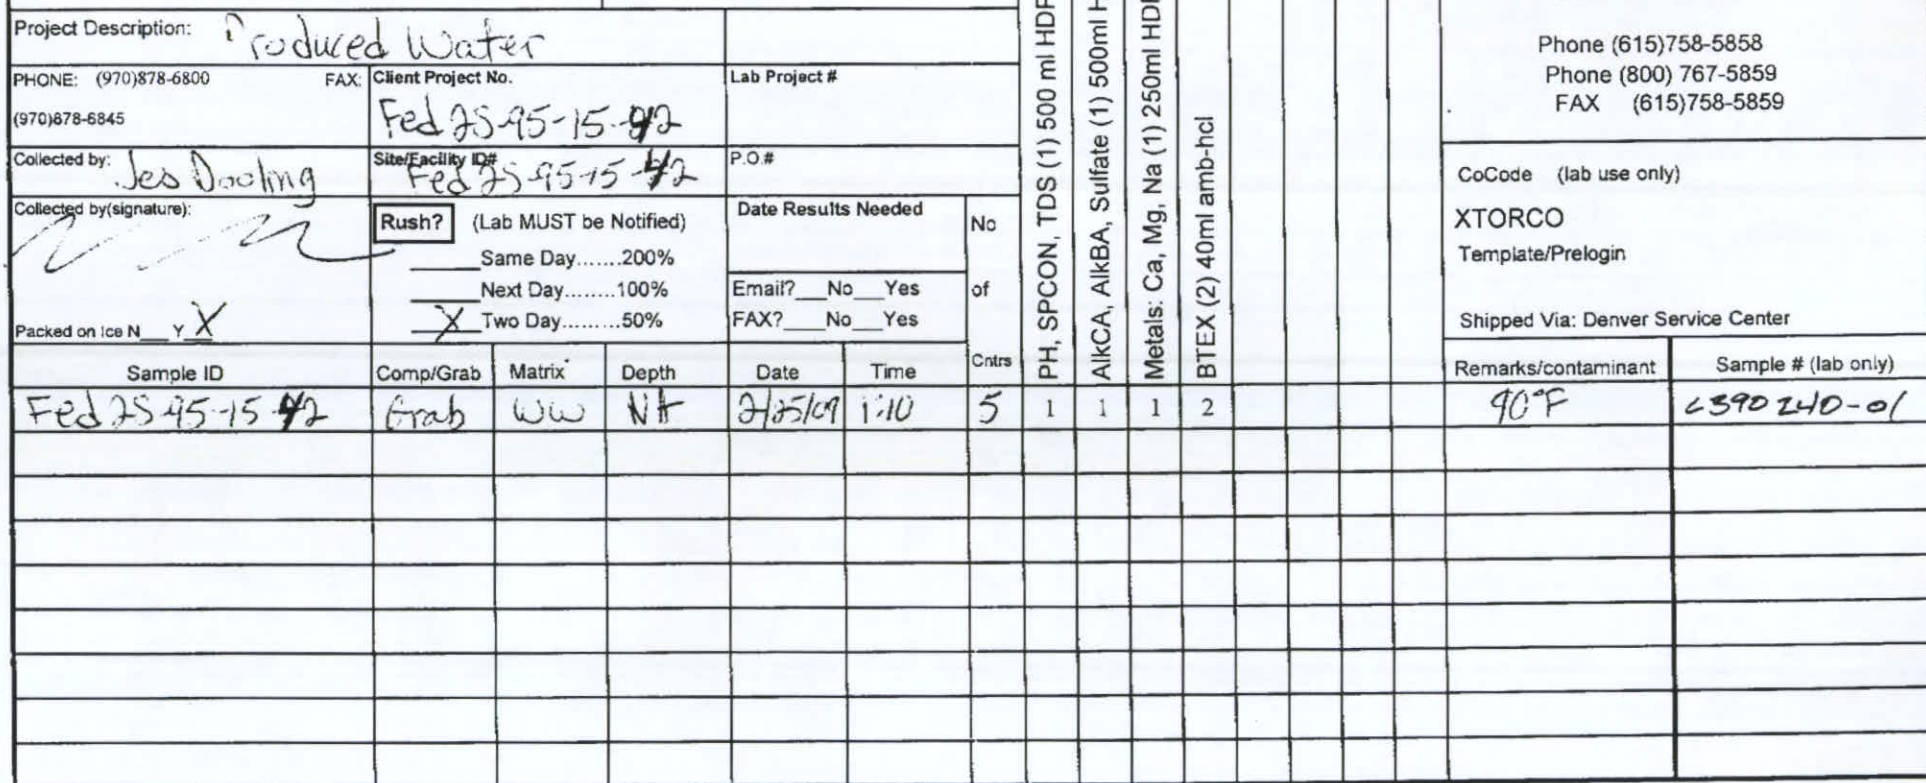 Project Description: Produced Water
PHONE: (970)878-6800 FAX:
(970)878-6845
Client Project No.
Fed 25-95-15-42
Lab Project #
Collected by: Jes Dooling
Site/Facility ID#
Fed 25-95-15-42
P.O.#
Collected by(signature):
Rush? (Lab MUST be Notified)
Same Day.......200%
Next Day.......100%
X Two Day.........50%
Date Results Needed
Email? No Yes
FAX? No Yes
No
of
Cntrs
Packed on Ice N Y X
PH, SPCON, TDS (1) 500 ml
AlkCA, AlkBA, Sulfate (1) 500ml
Metals: Ca, Mg, Na (1) 250ml
BTEX (2) 40ml amb-hcl
Phone (615)758-5858
Phone (800) 767-5859
FAX (615)758-5859
CoCode (lab use only)
XTORCO
Template/Prelogin
Shipped Via: Denver Service Center
Sample ID Comp/Grab Matrix Depth Date Time Remarks/contaminant Sample # (lab only)
Fed 25-95-15 42 Grab WW 2/25/09 1:10 5 1 1 1 2 90°F L390240-01